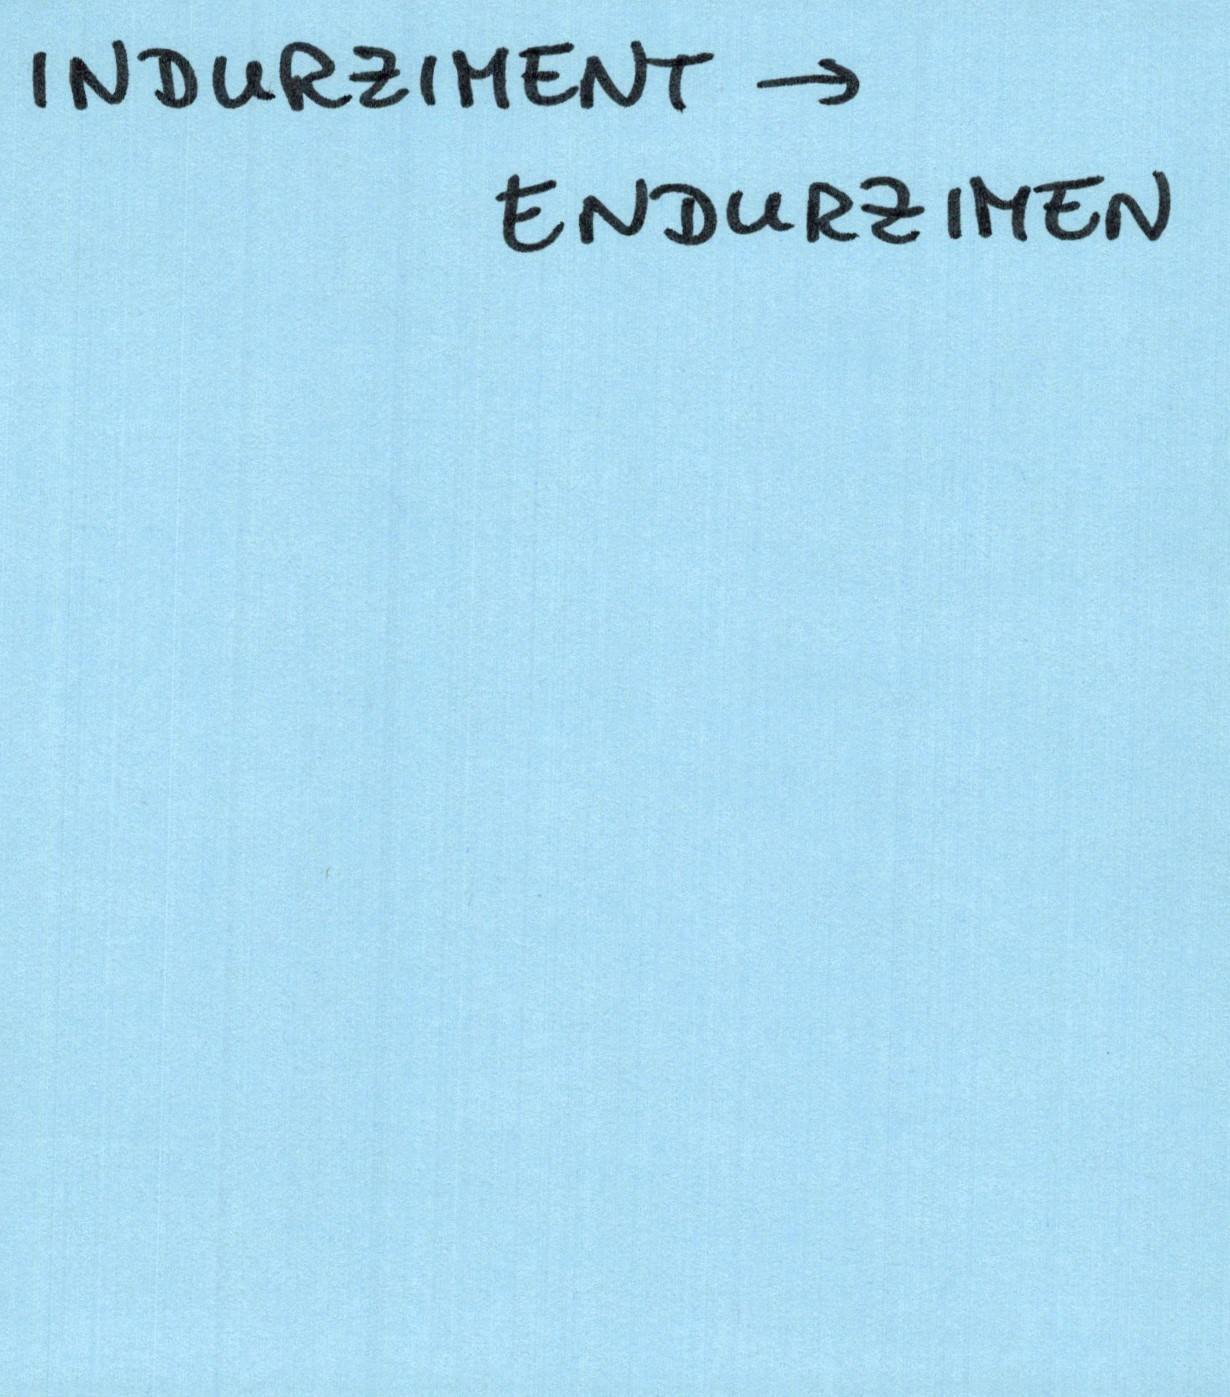 INDURZIMENT →
ENDURZIMEN